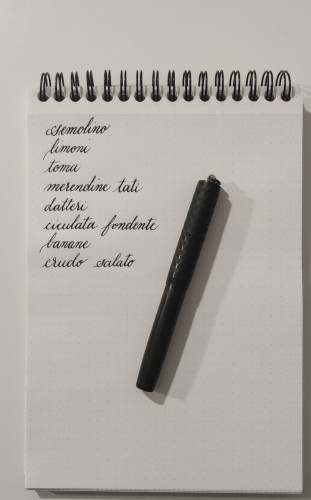 semolino
limoni
toma
merendine tati
datteri
ciculata fondente
banane
crudo salato